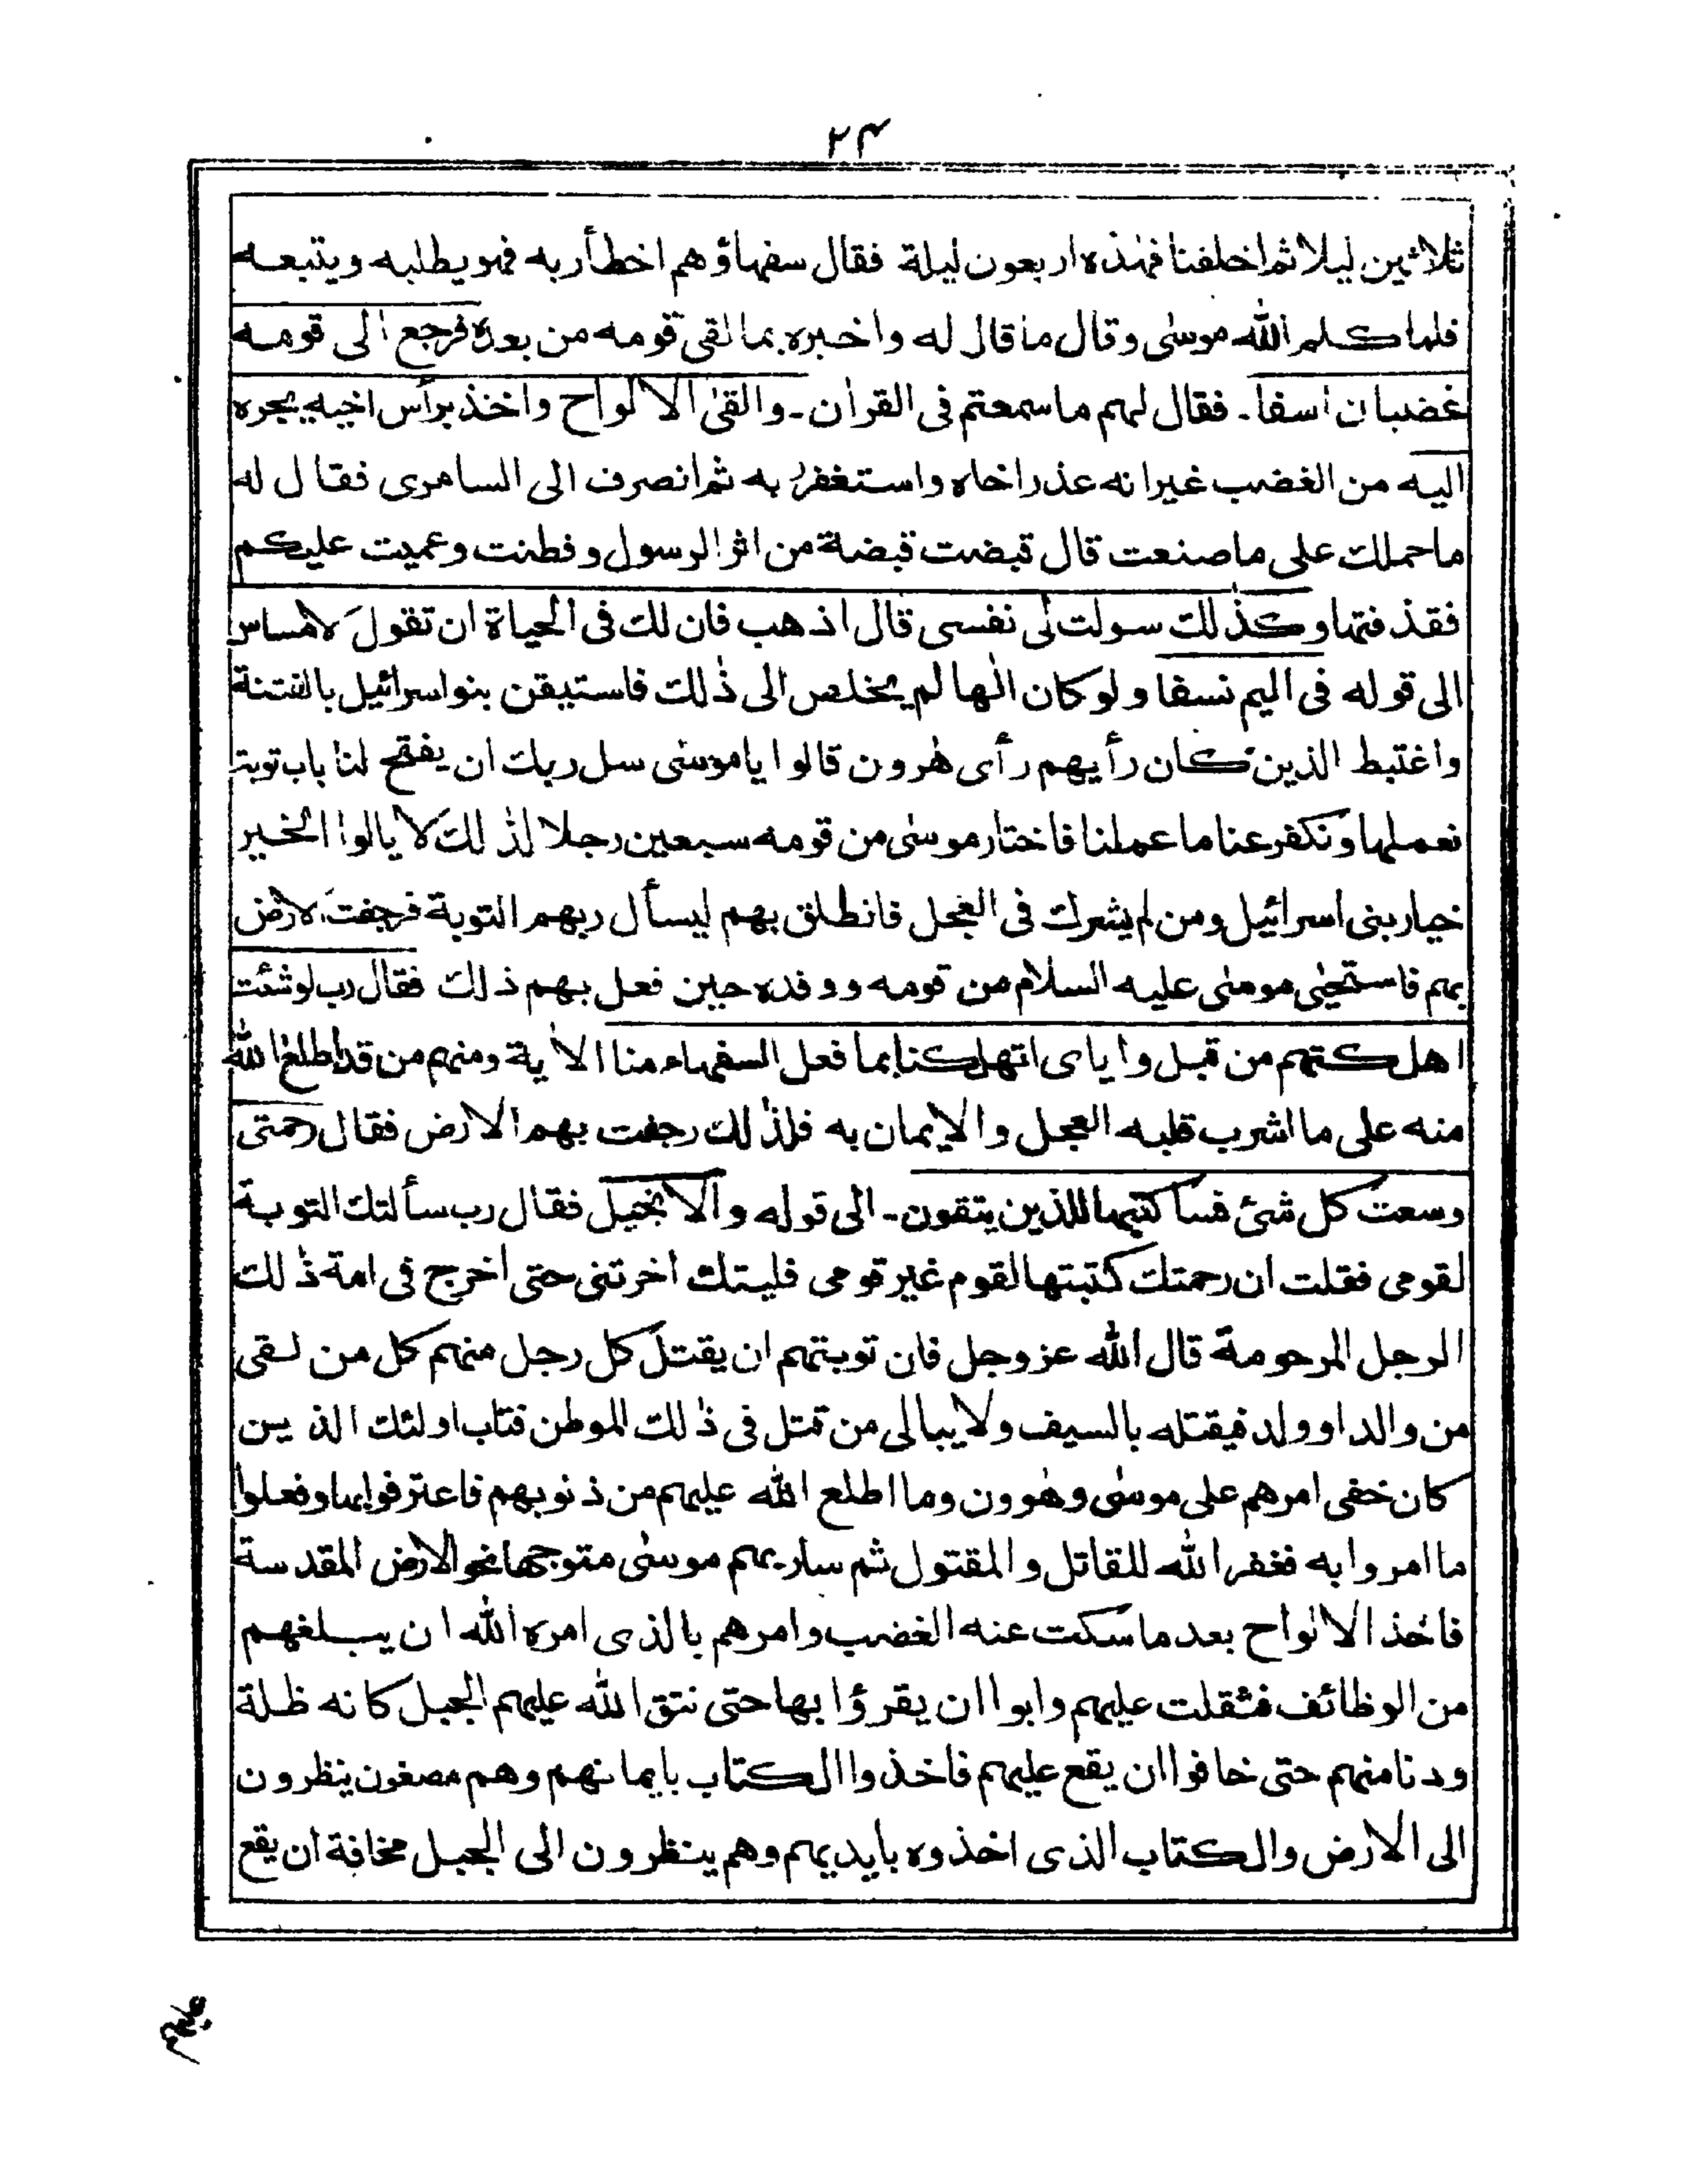 ٢٤
ثلاثين ليلا ثم اخلفنا فهٰذه اربعون ليلة فقال سفهاؤهم اخطأ ربه فهو يطلبه ويتبعه
فلما كلم الله موسٰى وقال ما قال له واخبره بما لقى قومه من بعده فرجع الى قومه
غضبان اسفا ـ فقال لهم ما سمعتم فى القراٰن ـ والقىٰ الالواح واخذ برأس اخيه يجره
اليه من الغضب غير انه عذر اخاه واستغفر به ثم انصرف الى السامرى فقال له
ما حملك على ما صنعت قال قبضت قبضة من اثر الرسول وفطنت وعميت عليكم
فقذفتها وكذٰلك سولت لى نفسى قال اذهب فان لك فى الحياة ان تقول لامساس
الى قوله فى اليم نسفا ولو كان الٰها لم يخلص الى ذٰلك فاستيقن بنو اسرائيل بالفتنة
واغتبط الذين كان رأيهم رأى هٰرون قالوا يا موسٰى سل ربك ان يفتح لنا باب توبة
نعملها ونكفر عنا ما عملنا فاختار موسٰى من قومه سبعين رجلا لذٰلك لا يالوا الخير
خيار بنى اسرائيل ومن لم يشرك فى العجل فانطلق بهم ليسأل ربهم التوبة فرجفت الارض
بهم فاستحيٰى موسٰى عليه السلام من قومه ووفده حين فعل بهم ذلك فقال رب لو شئت
اهلكتهم من قبل واياى اتهلكنا بما فعل السفهاء منا الاٰية ومنهم من قد اطلع الله
منه على ما اشرب قلبه العجل والايمان به فلذٰلك رجفت بهم الارض فقال رحمتى
وسعت كل شئ فساكتبها للذين يتقون ـ الى قوله والانجيل فقال رب سألتك التوبة
لقومى فقلت ان رحمتك كتبتها لقوم غير قومى فليتك اخرتنى حتى اخرج فى امة ذٰلك
الرجل المرحومة قال الله عز وجل فان توبتهم ان يقتل كل رجل منهم كل من لقى
من والد او ولد فيقتله بالسيف ولا يبالى من قتل فى ذٰلك الموطن فتاب اولئك الذين
كان خفى امرهم على موسٰى وهٰوون وما اطلع الله عليهم من ذنوبهم فاعترفوا بها وفعلوا
ما امروا به فغفر الله للقاتل والمقتول ثم سار بهم موسٰى متوجها نحو الارض المقدسة
فاخذ الالواح بعد ما سكت عنه الغضب وامرهم بالذى امره الله ان يبلغهم
من الوظائف فثقلت عليهم وابوا ان يقرؤا بها حتى نتق الله عليهم الجبل كانه ظلة
ودنا منهم حتى خافوا ان يقع عليهم فاخذوا الكتاب بايمانهم وهم مصغون ينظرون
الى الارض والكتاب الذى اخذوه بايديهم وهم ينظرون الى الجبل مخافة ان يقع